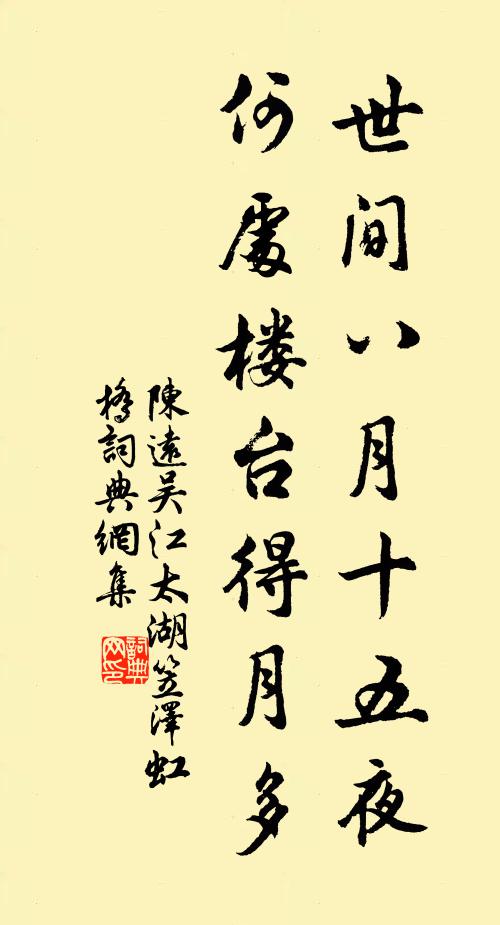 世间八月十五夜
何處楼台得月多
陳遠吴江太湖笠澤虹
橋詞典網集
詞典
网印